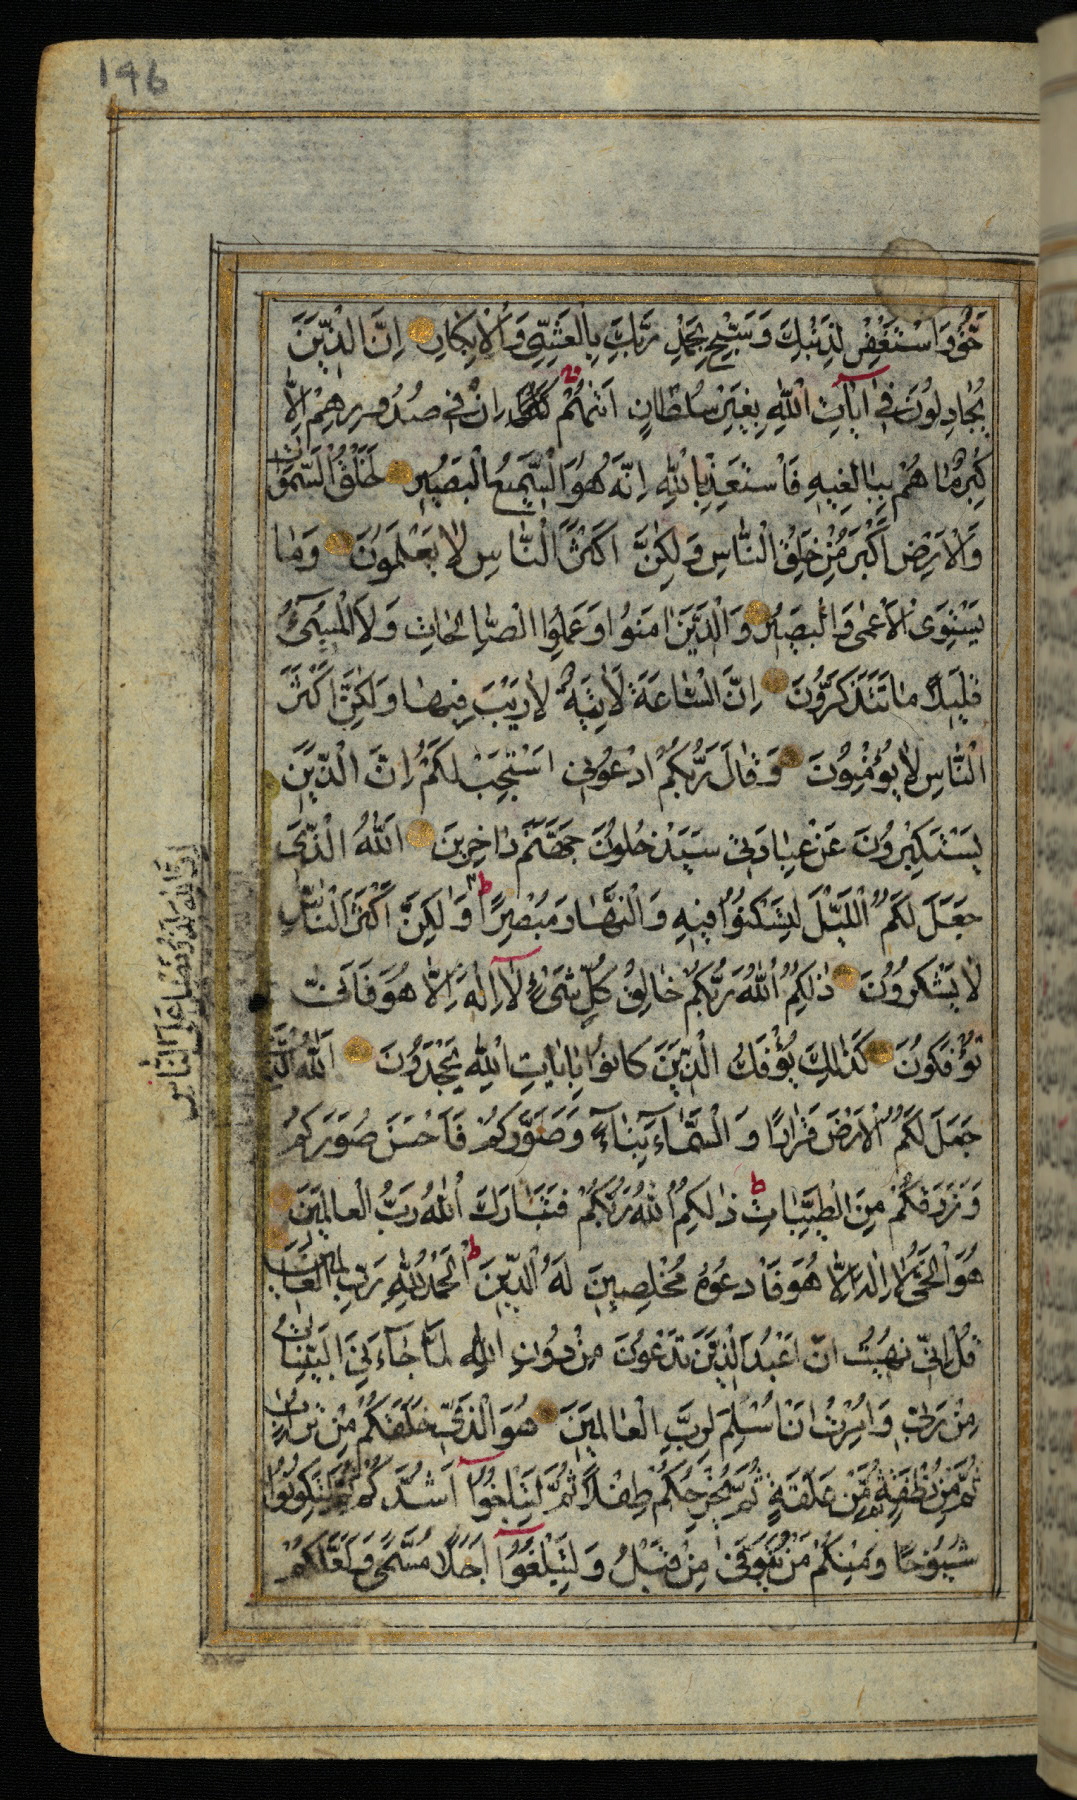 196
حَقٌّ وَاسْتَغْفِرْ لِذَنْبِكَ وَسَبِّحْ بِحَمْدِ رَبِّكَ بِالْعَشِيِّ وَالْاِبْكَارِ اِنَّ الَّذِينَ
يُجَادِلُونَ فِي اٰيَاتِ اللّٰهِ بِغَيْرِ سُلْطَانٍ اَتٰهُمْ اِنْ فِي صُدُورِهِمْ اِلَّا
كِبْرٌ مَا هُمْ بِبَالِغِيهِ فَاسْتَعِذْ بِاللّٰهِ اِنَّهُ هُوَ السَّمِيعُ الْبَصِيرُ لَخَلْقُ السَّمٰوَاتِ
وَالْاَرْضِ اَكْبَرُ مِنْ خَلْقِ النَّاسِ وَلٰكِنَّ اَكْثَرَ النَّاسِ لَا يَعْلَمُونَ وَمَا
يَسْتَوِي الْاَعْمٰى وَالْبَصِيرُ وَالَّذِينَ اٰمَنُوا وَعَمِلُوا الصَّالِحَاتِ وَلَا الْمُسِيٓءُ
قَلِيلًا مَا تَتَذَكَّرُونَ اِنَّ السَّاعَةَ لَاٰتِيَةٌ لَا رَيْبَ فِيهَا وَلٰكِنَّ اَكْثَرَ
النَّاسِ لَا يُؤْمِنُونَ وَقَالَ رَبُّكُمُ ادْعُونِي اَسْتَجِبْ لَكُمْ اِنَّ الَّذِينَ
يَسْتَكْبِرُونَ عَنْ عِبَادَتِي سَيَدْخُلُونَ جَهَنَّمَ دَاخِرِينَ اَللّٰهُ الَّذِي
جَعَلَ لَكُمُ اللَّيْلَ لِتَسْكُنُوا فِيهِ وَالنَّهَارَ مُبْصِرًا ط وَلٰكِنَّ اَكْثَرَ النَّاسِ
لَا يَشْكُرُونَ ذٰلِكُمُ اللّٰهُ رَبُّكُمْ خَالِقُ كُلِّ شَيْءٍ لَٓا اِلٰهَ اِلَّا هُوَ فَاَنّٰى
تُؤْفَكُونَ كَذٰلِكَ يُؤْفَكُ الَّذِينَ كَانُوا بِاٰيَاتِ اللّٰهِ يَجْحَدُونَ اَللّٰهُ الَّذِي
جَعَلَ لَكُمُ الْاَرْضَ قَرَارًا وَالسَّمَٓاءَ بِنَٓاءً وَصَوَّرَكُمْ فَاَحْسَنَ صُوَرَكُمْ
وَرَزَقَكُمْ مِنَ الطَّيِّبَاتِ ط ذٰلِكُمُ اللّٰهُ رَبُّكُمْ فَتَبَارَكَ اللّٰهُ رَبُّ الْعَالَمِينَ
هُوَ الْحَيُّ لَا اِلٰهَ اِلَّا هُوَ فَادْعُوهُ مُخْلِصِينَ لَهُ الدِّينَ ط اَلْحَمْدُ لِلّٰهِ رَبِّ الْعَالَمِينَ
قُلْ اِنِّي نُهِيتُ اَنْ اَعْبُدَ الَّذِينَ تَدْعُونَ مِنْ دُونِ اللّٰهِ لَمَّا جَٓاءَنِيَ الْبَيِّنَاتُ
مِنْ رَبِّي وَاُمِرْتُ اَنْ اُسْلِمَ لِرَبِّ الْعَالَمِينَ هُوَ الَّذِي خَلَقَكُمْ مِنْ تُرَابٍ
ثُمَّ مِنْ نُطْفَةٍ ثُمَّ مِنْ عَلَقَةٍ ثُمَّ يُخْرِجُكُمْ طِفْلًا ثُمَّ لِتَبْلُغُٓوا اَشُدَّكُمْ ثُمَّ لِتَكُونُوا
شُيُوخًا وَمِنْكُمْ مَنْ يُتَوَفّٰى مِنْ قَبْلُ وَلِتَبْلُغُٓوا اَجَلًا مُسَمًّى وَلَعَلَّكُمْ
اِنَّ اللّٰهَ لَذُو فَضْلٍ عَلَى النَّاسِ